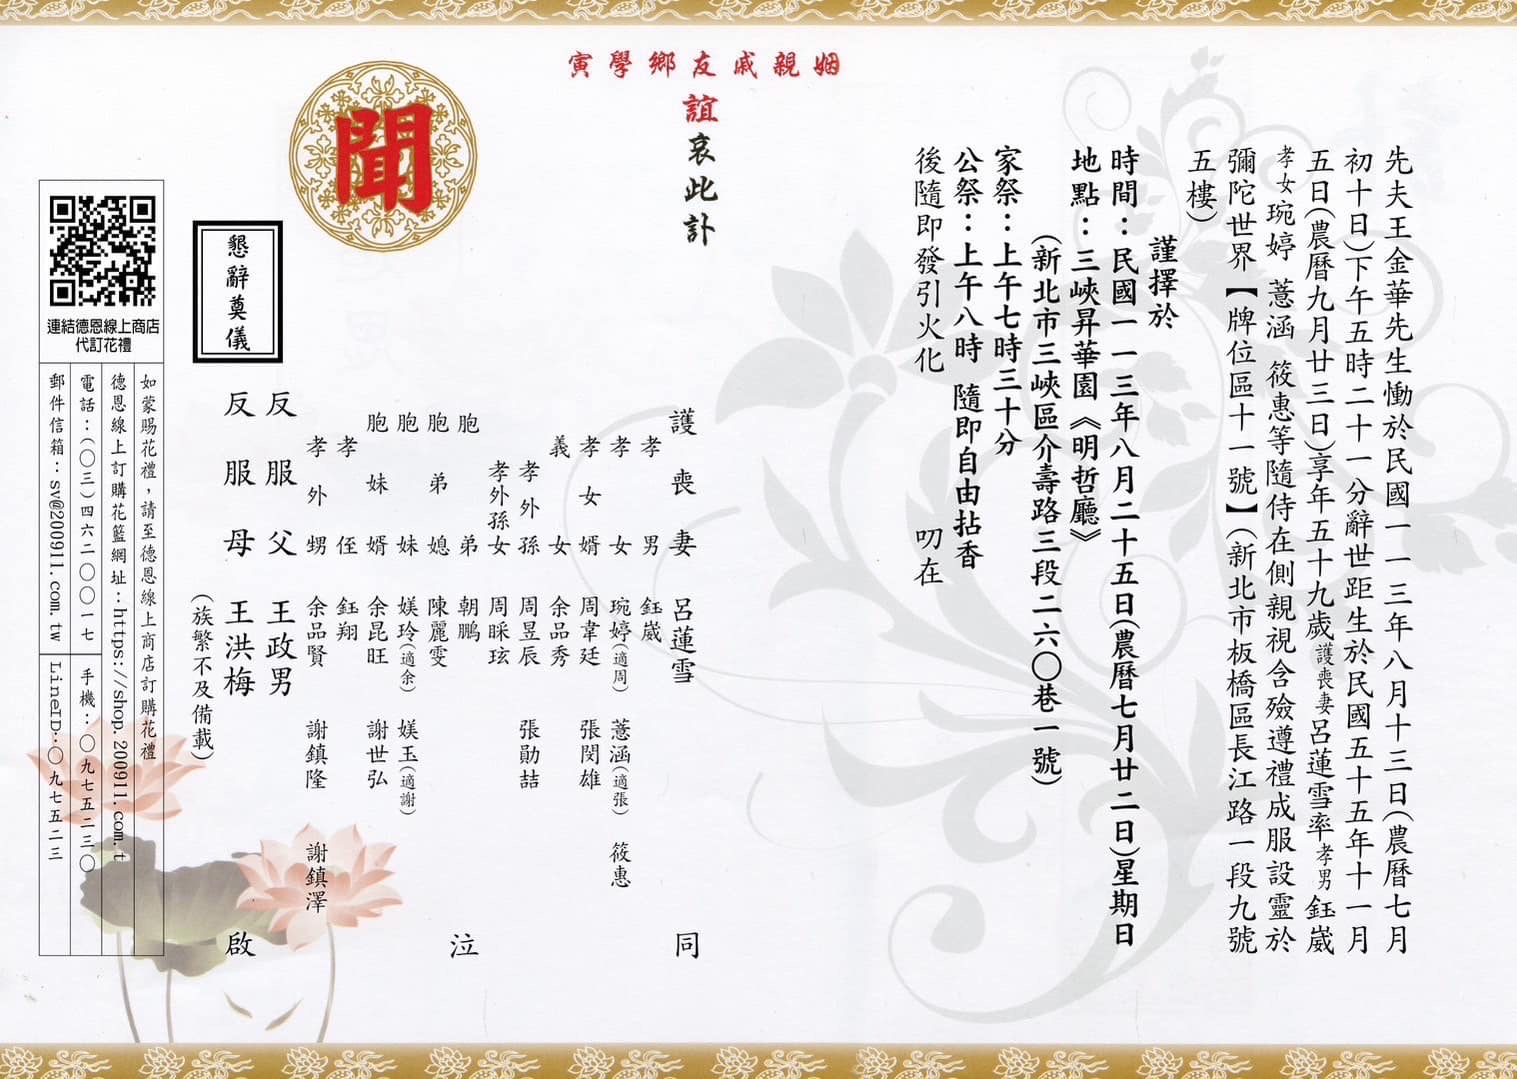 先夫王金華先生慟於民國一一三年八月十三日(農曆七月
初十日)下午五時二十一分辭世距生於民國五十五年十一月
五日(農曆九月廿三日)享年五十九歲護喪妻呂蓮雪率孝男鈺崴
孝女琬婷 薏涵 筱惠等隨侍在側親視含殮遵禮成服設靈於
彌陀世界【牌位區十一號】(新北市板橋區長江路一段九號
五樓)
謹擇於
時間:民國一一三年八月二十五日(農曆七月廿二日)星期日
地點:三峽昇華園《明哲廳》
(新北市三峽區介壽路三段二六〇巷一號)
家祭:上午七時三十分
公祭:上午八時 隨即自由拈香
後隨即發引火化 叨在
姻親戚友鄉學寅
誼哀此訃
聞
懇辭奠儀
護喪妻 呂蓮雪 同
孝男 鈺崴
孝女 琬婷(適周) 薏涵(適張) 筱惠
孝女婿 周韋廷 張閔雄
義女 余品秀
孝外孫 周昱辰 張勛喆
孝外孫女 周睬玹
胞弟 朝鵬 泣
胞弟媳 陳麗雯
胞妹 媄玲(適余) 媄玉(適謝)
胞妹婿 余昆旺 謝世弘
孝侄 鈺翔
孝外甥 余品賢 謝鎮隆 謝鎮澤
反服父 王政男
反服母 王洪梅 啟
(族繁不及備載)
連結德恩線上商店
代訂花禮
如蒙賜花禮,請至德恩線上商店訂購花禮
德恩線上訂購花籃網址:https://shop.200911.com.t
電話:(〇三)四六二〇〇一七 手機:〇九七五二三〇
郵件信箱:sv@200911.com.tw LineID:〇九七五二三